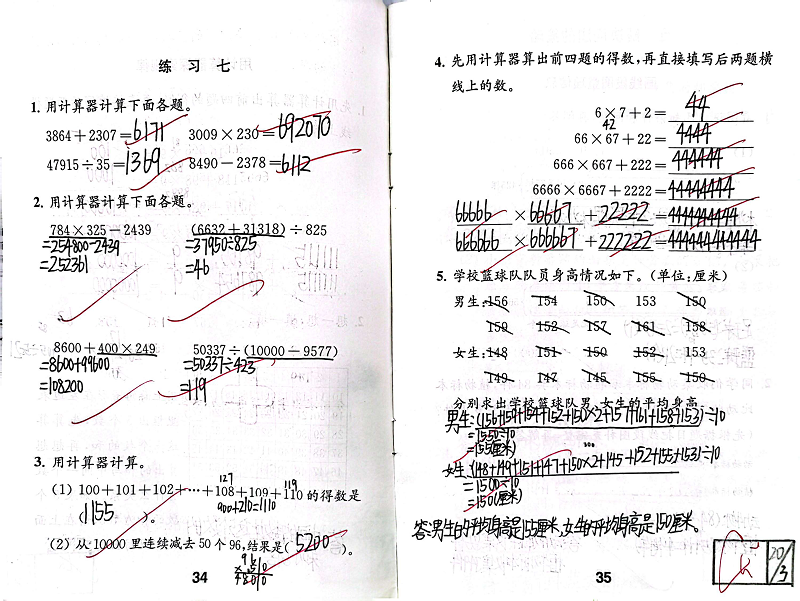 练 习 七
1. 用计算器计算下面各题。
3864+2307=6171 3009×230=692070
47915÷35=1369 8490-2378=6112
2. 用计算器计算下面各题。
784×325-2439 (6632+31318)÷825
=254800-2439 =37950÷825
=252361 =46
8600+400×249 50337÷(10000-9577)
=8600+99600 =50337÷423
=108200 =119
3. 用计算器计算。
127 119
(1) 100+101+102+…+108+109+110 的得数是
900+210=1110
(1155)。
(2) 从 10000 里连续减去 50 个 96,结果是(5200)。
96
4800
34
4. 先用计算器算出前四题的得数,再直接填写后两题横
线上的数。
6×7+2=44
42
66×67+22=4444
666×667+222=444444
6666×6667+2222=44444444
66666×66667+22222=4444444444
666666×666667+222222=444444444444
5. 学校篮球队队员身高情况如下。(单位:厘米)
男生:156 154 150 153 150
159 152 157 161 158
女生:148 151 150 152 153
149 147 145 155 150
分别求出学校篮球队男、女生的平均身高。
男生:(156+159+154+152+150×2+157+161+158+153)÷10
=1550÷10
=155(厘米)
女生:(148+149+151+147+150×2+145+152+155+153)÷10
=1500÷10
=150(厘米)
答:男生的平均身高是155厘米,女生的平均身高是150厘米。
20/3
35